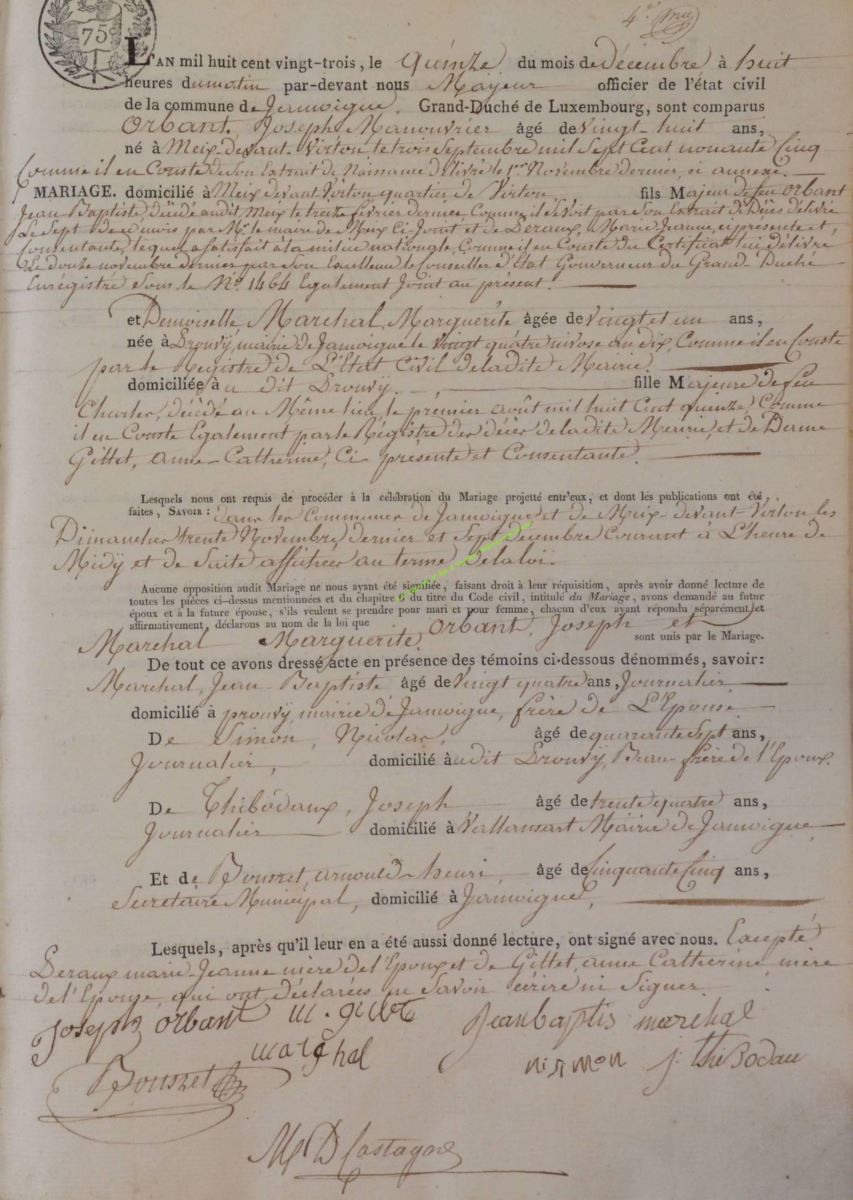 4e
75
L'AN mil huit cent vingt-trois, le quinze du mois de décembre à huit
heures du matin par-devant nous Majeur officier de l'état civil
de la commune de Jamoigne, Grand-Duché de Luxembourg, sont comparus
Orbant, Joseph Manouvrier âgé de vingt-huit ans,
né à Meix devant-Virton le trois Septembre mil Sept Cent nonante Cinq
Comme il en Conste de son Extrait de Naissance délivré le 1er Novembre dernier, ci annexé.
MARIAGE. domicilié à Meix devant Virton quartier de Virton fils Majeur de feu Orbant
Jean Baptiste, décédé audit Meix le treize février dernier, Comme il se Voit par son Extrait de Décès délivré
le Sept de ce mois par Mr. le maire de Meix Ci-Joint et de Deraux, Marie Jeanne, ci présente et,
Consentante, lequel a satisfait à la milice nationale, Comme il en Conste du Certificat lui délivré
le douze novembre dernier par Son Excellence le Conseiller d'Etat Gouverneur du Grand-Duché
Enregistré Sous le No. 1464 Egalement Joint au présent.
et Demoiselle Marchal, Marguerite âgée de vingt et un ans,
née à Prouvÿ, mairie de Jamoigne le vingt quatre nivose an dix, Comme il en Conste
par le Registre de L'Etat Civil de ladite Mairie.
domiciliée au dit Prouvÿ. fille Majeure de feu
Charles, décédé au Même lieu le premier août mil huit Cent quinze, Comme
il en Conste Egalement par le Régistre des décès de ladite Mairie, et de Dame
Gillet, anne-Catherine, Ci-présente et Consentante.
Lesquels nous ont requis de procéder à la célébration du Mariage projetté entr'eux, et dont les publications ont été
faites, SAVOIR : dans les Communes de Jamoigne et de Meix-devant-Virton les
Dimanches trente Novembre dernier et Sept décembre Courant à L'heure de
Midÿ et de Suite affichées au terme de la loi.
Aucune opposition audit Mariage ne nous ayant été signifiée, faisant droit à leur réquisition, après avoir donné lecture de
toutes les pièces ci-dessus mentionnées et du chapitre 6 du titre du Code civil, intitulé du Mariage, avons demandé au futur
époux et à la future épouse, s'ils veulent se prendre pour mari et pour femme, chacun d'eux ayant répondu séparément et
affirmativement, déclarons au nom de la loi que Orbant, Joseph et
Marchal Marguerite. sont unis par le Mariage.
De tout ce avons dressé acte en présence des témoins ci-dessous dénommés, savoir:
Marchal, Jean-Baptiste âgé de vingt quatre ans, Journalier
domicilié à prouvÿ, mairie de Jamoigne, frère de L'Epouse
De Simon, Nicolas, âgé de quarante Sept ans,
Journalier, domicilié audit Prouvÿ, Beau-frère de l'Epoux.
De Thibôdaux, Joseph âgé de trente quatre ans,
Journalier domicilié à Vallansart Mairie de Jamoigne,
Et de Bousret, arnould-henri, âgé de Cinquante Cinq ans,
Secretaire Municipal, domicilié à Jamoigne,
Lesquels, après qu'il leur en a été aussi donné lecture, ont signé avec nous. Excepté
Deraux marie-Jeanne mère de l'Epoux et de Gillet, anne Catherine mère
de l'Epouse, qui ont déclarées ne Savoir écrire ni Signer.
Joseph orbant
marchal
Jean baptis marchal
Bousret
nisimon
j: thiBodau